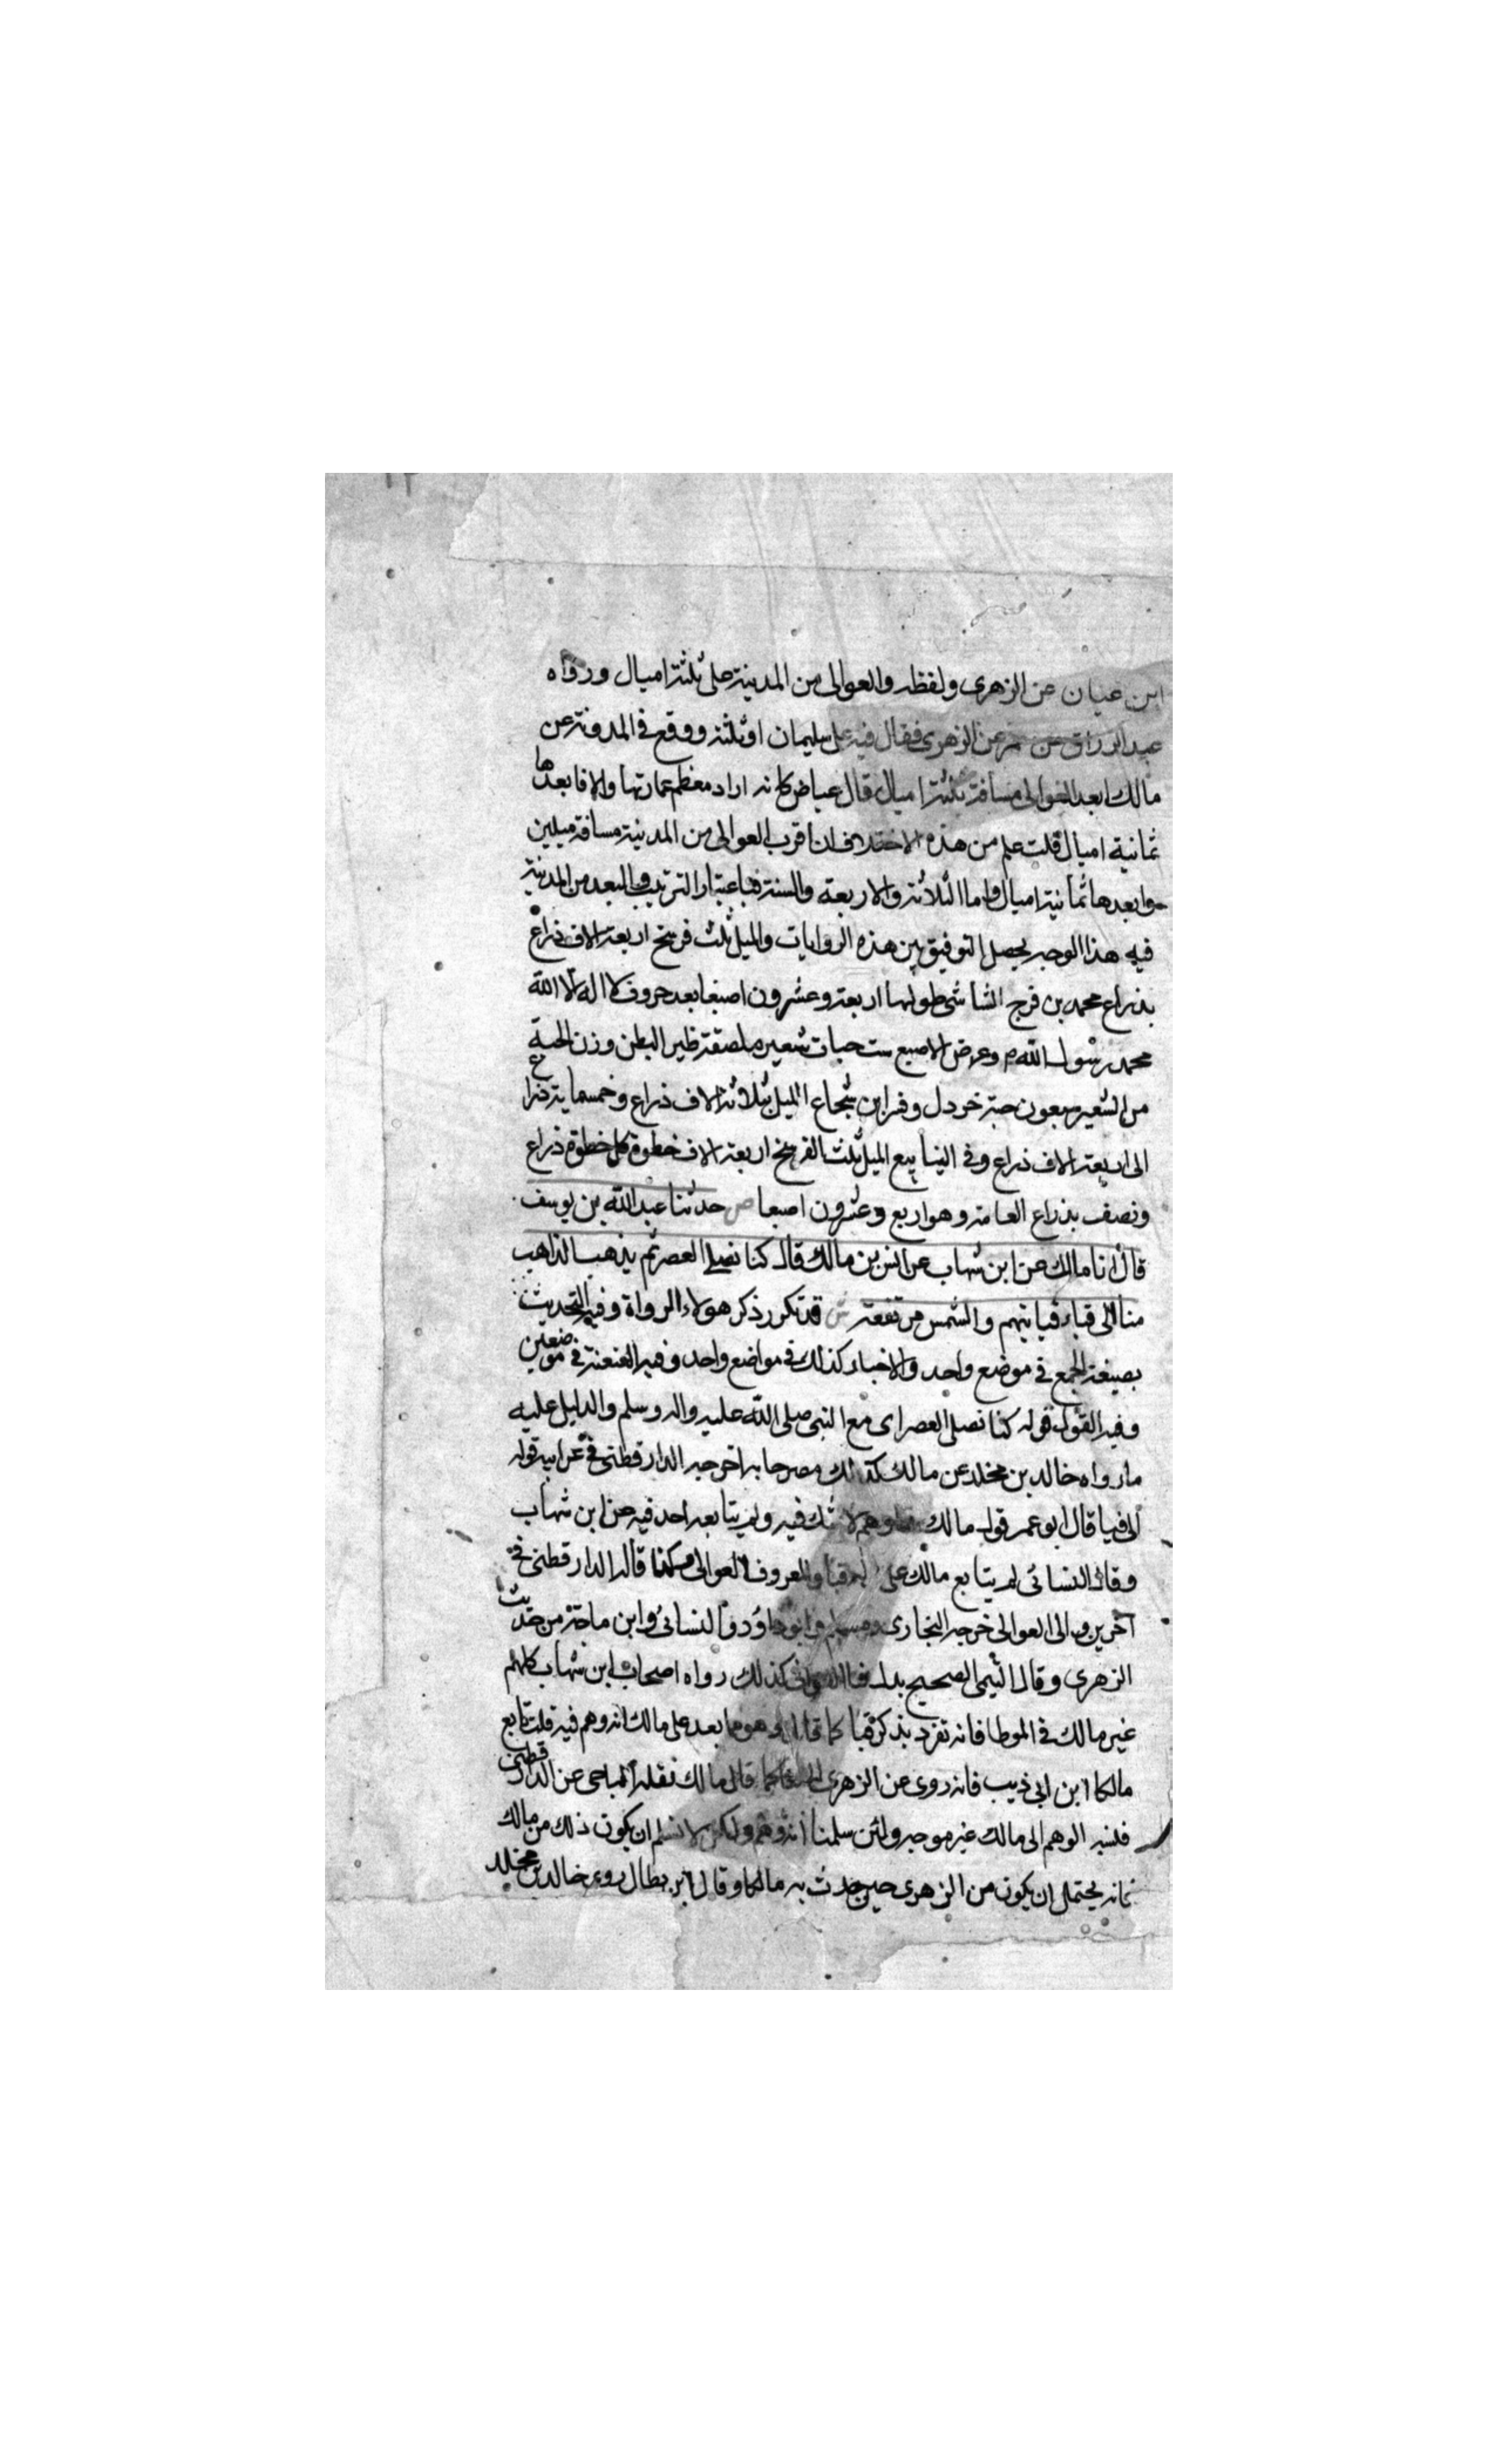 ابن عيان عن الزهرى ولفظه والعوالى من المدينة على ثلثة اميال ورواه
عبد الرزاق عن معمر عن الزهرى فقال فيه على سليمان او ثلثة ووقع فى المدونة عن
مالك ابعد العوالى مسافة ثلثة اميال قال عياض كانه اراد معظم عمارتها والا فابعدها
ثمانية اميال قلت علم من هذه الاختلاف ان اقرب العوالى من المدينة مسافة ميلين
وابعدها ثمانية اميال واما الثلاثة والاربعة والستة فباعتبار الترتيب والبعد من المدينة
فيه هذا الوجه يحصل التوفيق بين هذه الروايات والميل ثلث فرسخ اربعة الاف ذراع
بذراع محمد بن فرج الشاشى طولها اربعة وعشرون اصبعا بعد حروف لا اله الا الله
محمد رسول الله م وعرض الاصبع ست حبات شعير ملصقة ظهر البطن وزن الحبة
من الشعير سبعون حبة خردل وفسر ابن شجاع الميل بثلاثة الاف ذراع وخمسماية ذراع
الى اربعة الاف ذراع وفى الينابيع الميل ثلث الفرسخ اربعة الاف خطوة كل خطوة ذراع
ونصف بذراع العامة وهو اربع وعشرون اصبعا ص حدثنا عبد الله بن يوسف
قال انا مالك عن ابن شهاب عن انس بن مالك قال كنا نصلى العصر ثم يذهب الذاهب
منا الى قباء فياتيهم والشمس مرتفعة ش قد تكرر ذكر هولاء الرواة وفيه التحديث
بصيغة الجمع فى موضع واحد والاخبار كذلك فى مواضع واحد وفيه العنعنة فى موضعين
وفيه القول قوله كنا نصلى العصر اى مع النبى صلى الله عليه واله وسلم والدليل عليه
ما رواه خالد بن مخلد عن مالك كذلك مصرحا به اخرجه الدارقطنى فى غرايبه قوله
الى قبا قال ابو عمر قول مالك وهم لا شك فيه ولم يتابعه احد فيه عن ابن شهاب
وقال النسائى لم يتابع مالك على قبا والمعروف العوالى وكذا قاله الدارقطنى فى
آخرين والى العوالى خرجه البخارى ومسلم وابو داود والنسائى وابن ماجة من حديث
الزهرى وقال التيمى الصحيح بدل قبا العوالى كذلك رواه اصحاب ابن شهاب كلهم
غير مالك فى الموطا فانه تفرد بذكر قبا وهو مما بعد على مالك انه وهم فيه قلت تابع
مالكا ابن ابى ذيب فانه روى عن الزهرى الى قبا كما قال مالك نقله الباجى عن الدارقطنى
فنسبه الوهم الى مالك غير موجه ولئن سلمنا انه وهم ولكن لا نسلم ان يكون ذلك من مالك
فانه يحتمل ان يكون من الزهرى حين حدث به مالكا وقال ابن بطال روى خالد بن مخلد